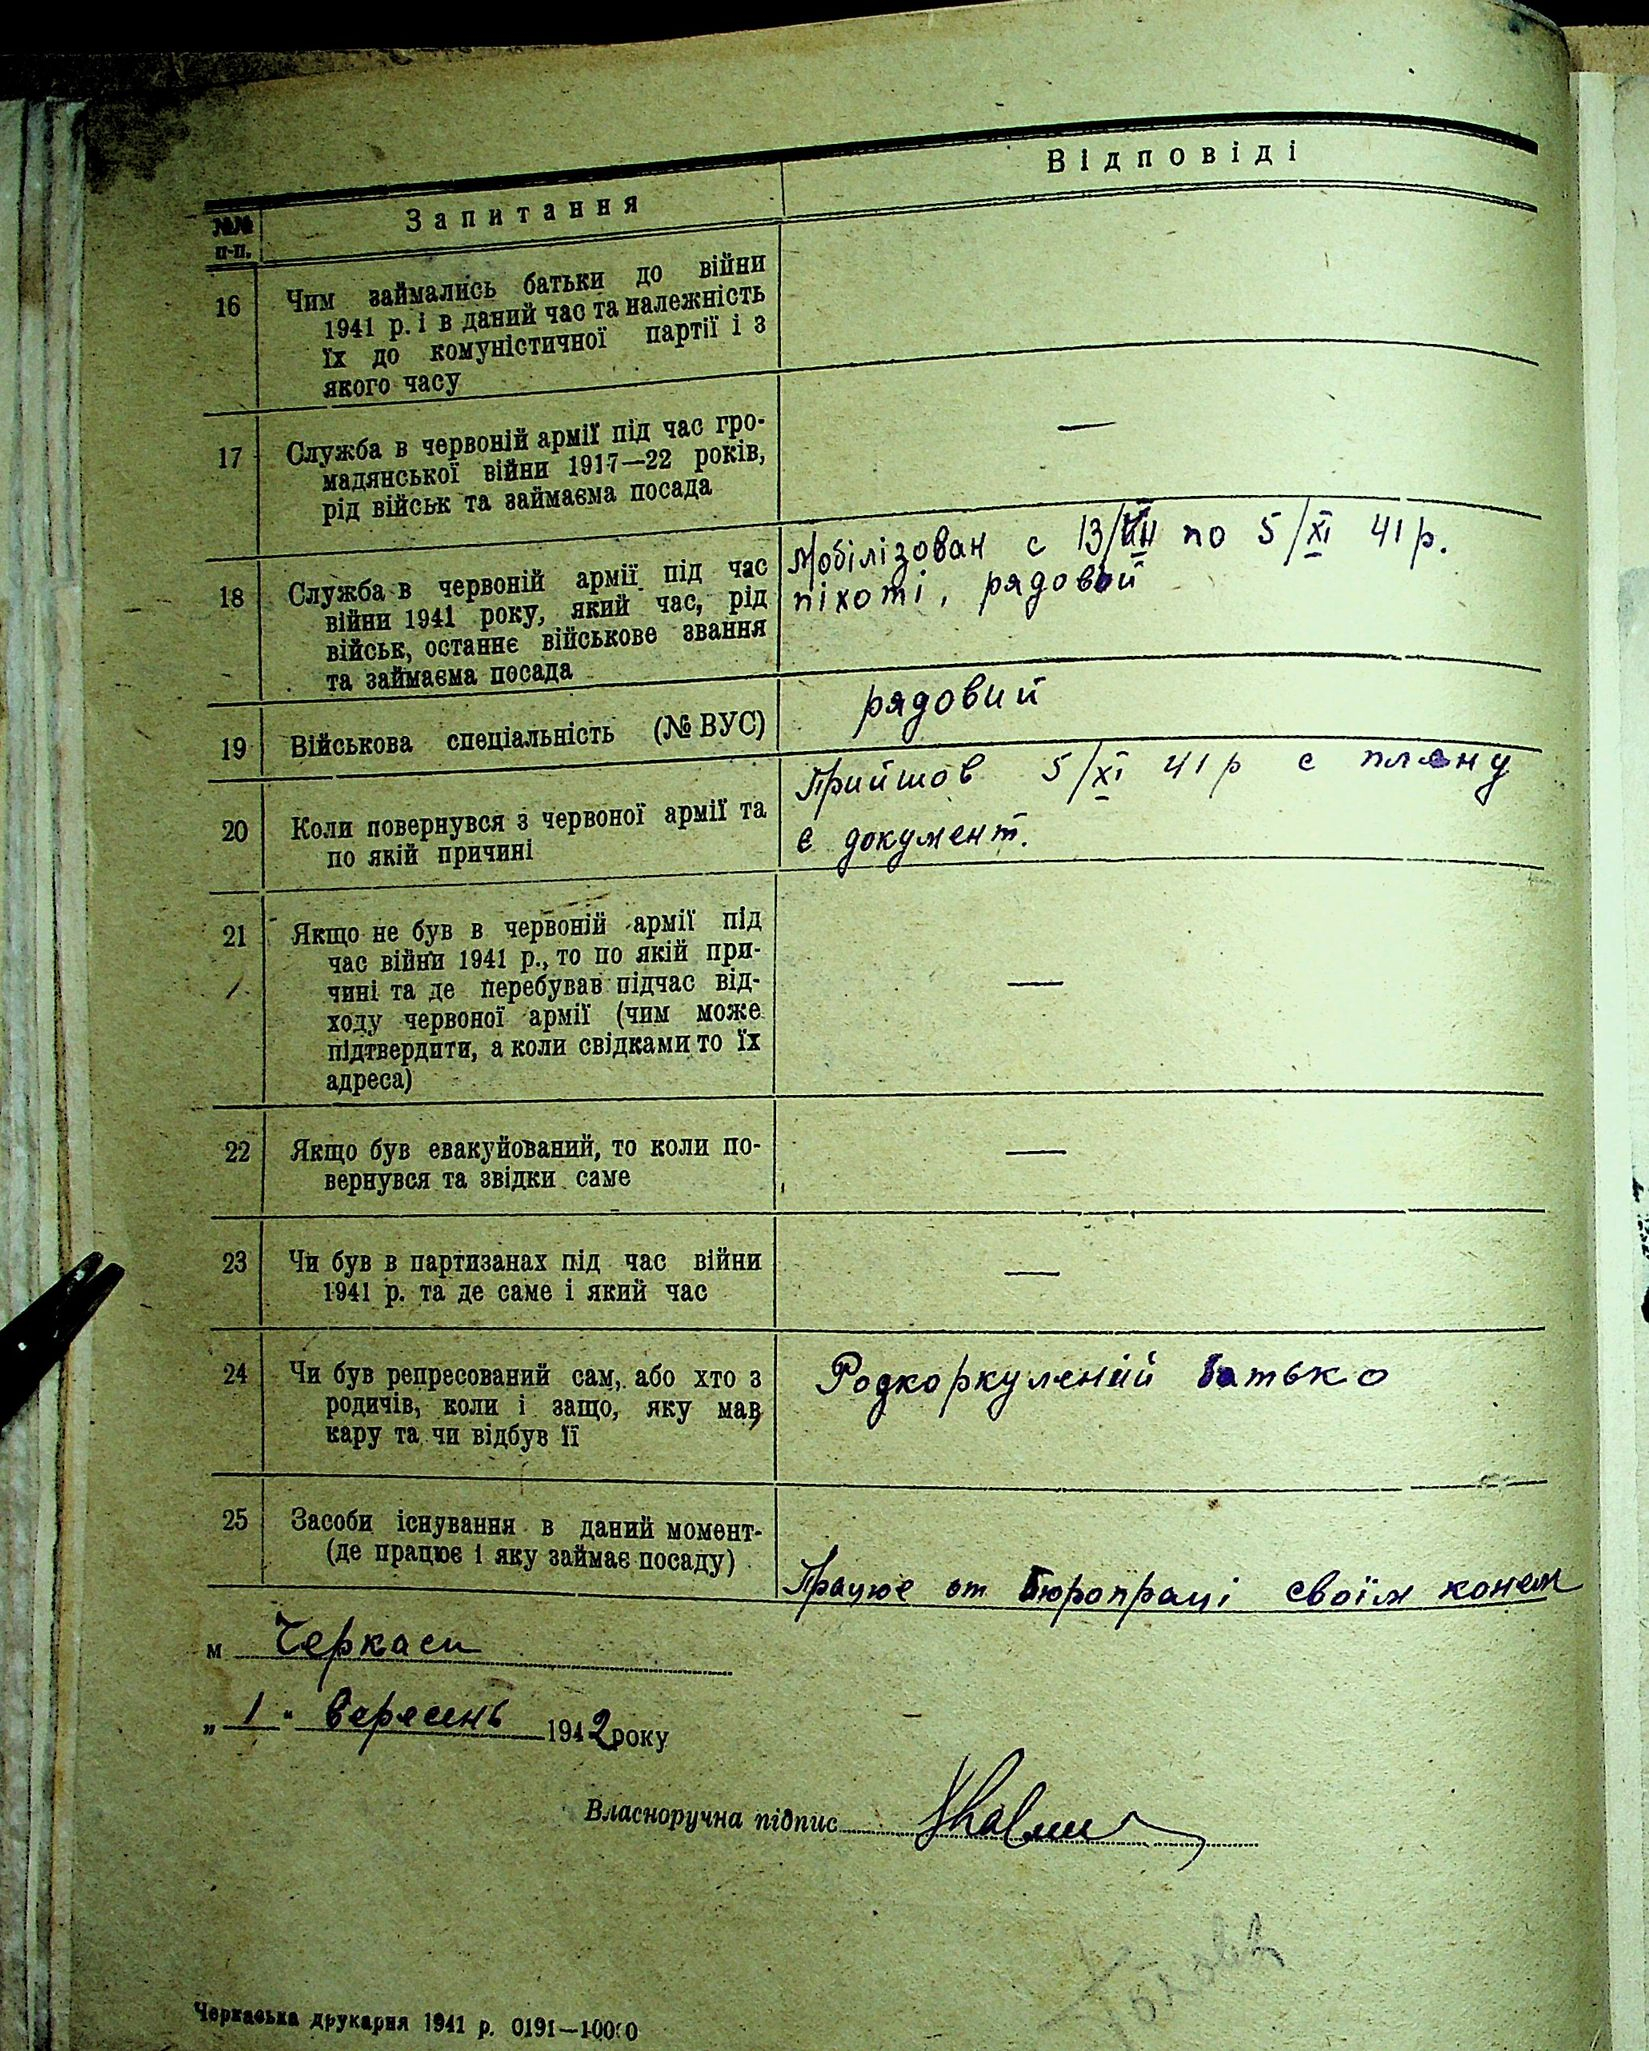 №№ п-п.
Запитання
Відповіді
16
Чим займались батьки до війни
1941 р. і в даний час та належність
їх до комуністичної партії і з
якого часу
17
Служба в червоній армії під час гро-
мадянської війни 1917—22 років,
рід військ та займаєма посада
—
18
Служба в червоній армії під час
війни 1941 року, який час, рід
військ, останнє військове звання
та займаєма посада
Мобілізован с 13/VII по 5/XI 41 р.
піхоті, рядовий
19
Військова спеціальність (№ ВУС)
рядовий
20
Коли повернувся з червоної армії та
по якій причині
Прийшов 5/XI 41 р с плену
є документ.
21
Якщо не був в червоній армії під
час війни 1941 р., то по якій при-
чині та де перебував підчас від-
ходу червоної армії (чим може
підтвердити, а коли свідками то їх
адреса)
—
22
Якщо був евакуйований, то коли по-
вернувся та звідки саме
—
23
Чи був в партизанах під час війни
1941 р. та де саме і який час
—
24
Чи був репресований сам, або хто з
родичів, коли і защо, яку мав
кару та чи відбув її
Родкоркулений батько
25
Засоби існування в даний момент-
(де працює і яку займає посаду)
Працює от Бюропраці своїм конем
м Черкаси
„ 1 " вересень 1942 року
Власноручна підпис
Черкаська друкарня 1941 р. 0191—10000